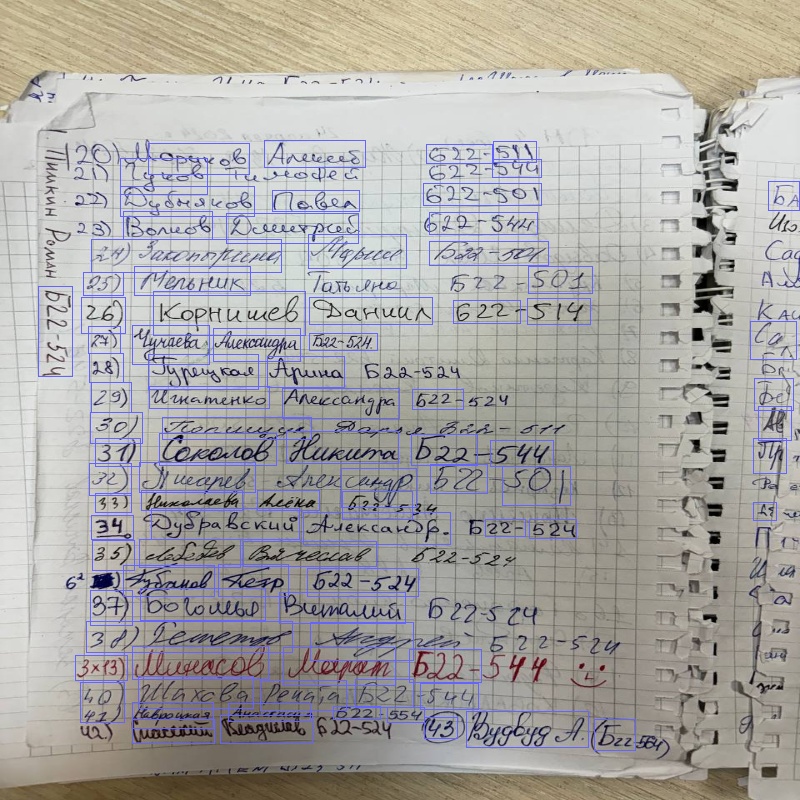 Пишкин Роман Б22-524
20) Марчков Алексей Б22-511
21) Чуков Тимофей Б22-544
22) Дубняков Павел Б22-501
23) Волков Дмитрий Б22-544
24) Закопырина Мария Б22-501
25) Мельник Татьяна Б22-501
26) Корнишев Даниил Б22-514
27) Чучаева Александра Б22-524
28) Турецкая Арина Б22-524
29) Игнатенко Александра Б22-524
30) Полищук Дарья Б22-511
31) Соколов Никита Б22-544
32) Писарев Александр Б22-501
33) Николаева Алёна Б22-534
34. Дубравский Александр. Б22-524
35) Лебедев Вячеслав Б22-524
6²) Губанов Петр Б22-524
37) Боголья Виталий Б22-524
38) Андрей Б22-524
3×13) Минасов Марат Б22-544
40) Шахова Рената Б22-544
41) Навроцкая Анастасия Б22-554
42) Спасский Владислав Б22-524
43 Вудвуд А. (Б22-564)